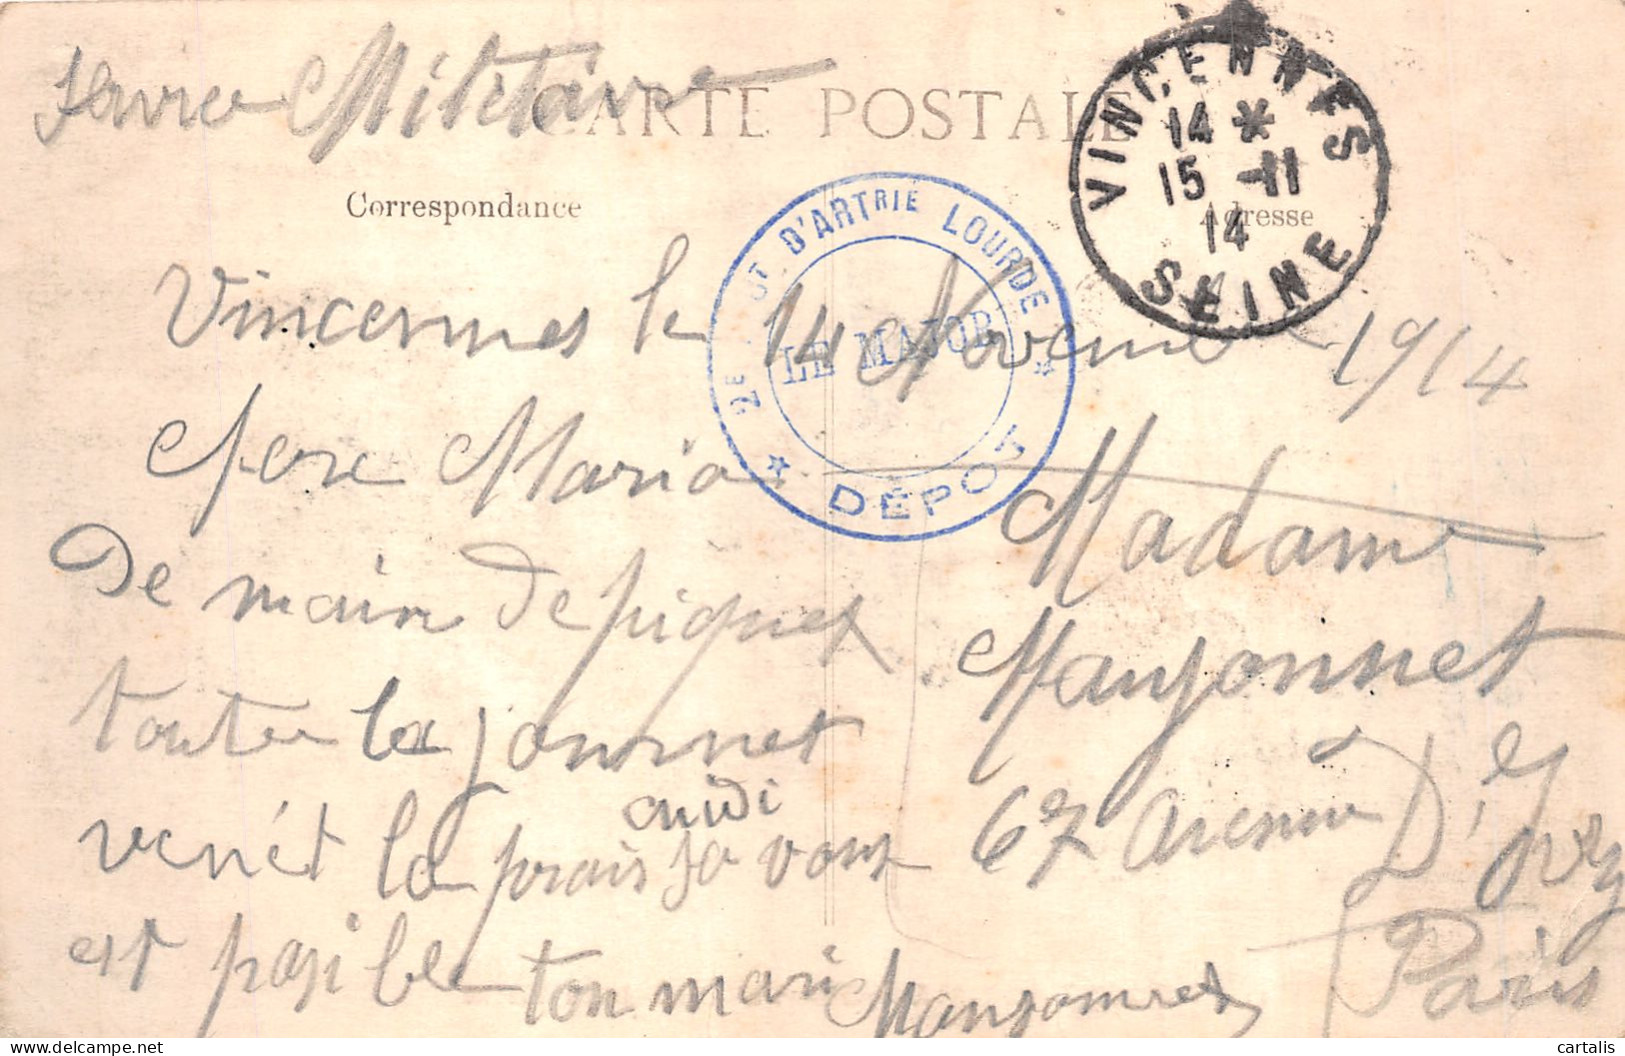 Servce Militaire
CARTE POSTALE
VINCENNES
14 *
15 -11
14
SEINE
Correspondance
Adresse
2E D'ARTRIE LOURDE
LE MAJOR
DÉPOT
Vincennes le 14 Novem 1914
chere Maria
De main De piquet
toute la journet
venét la prais midi
si vous
est posible ton mari
Manyonnet
Madame
Manyonnet
67 Avenue D'Ivry
Paris
cartalis